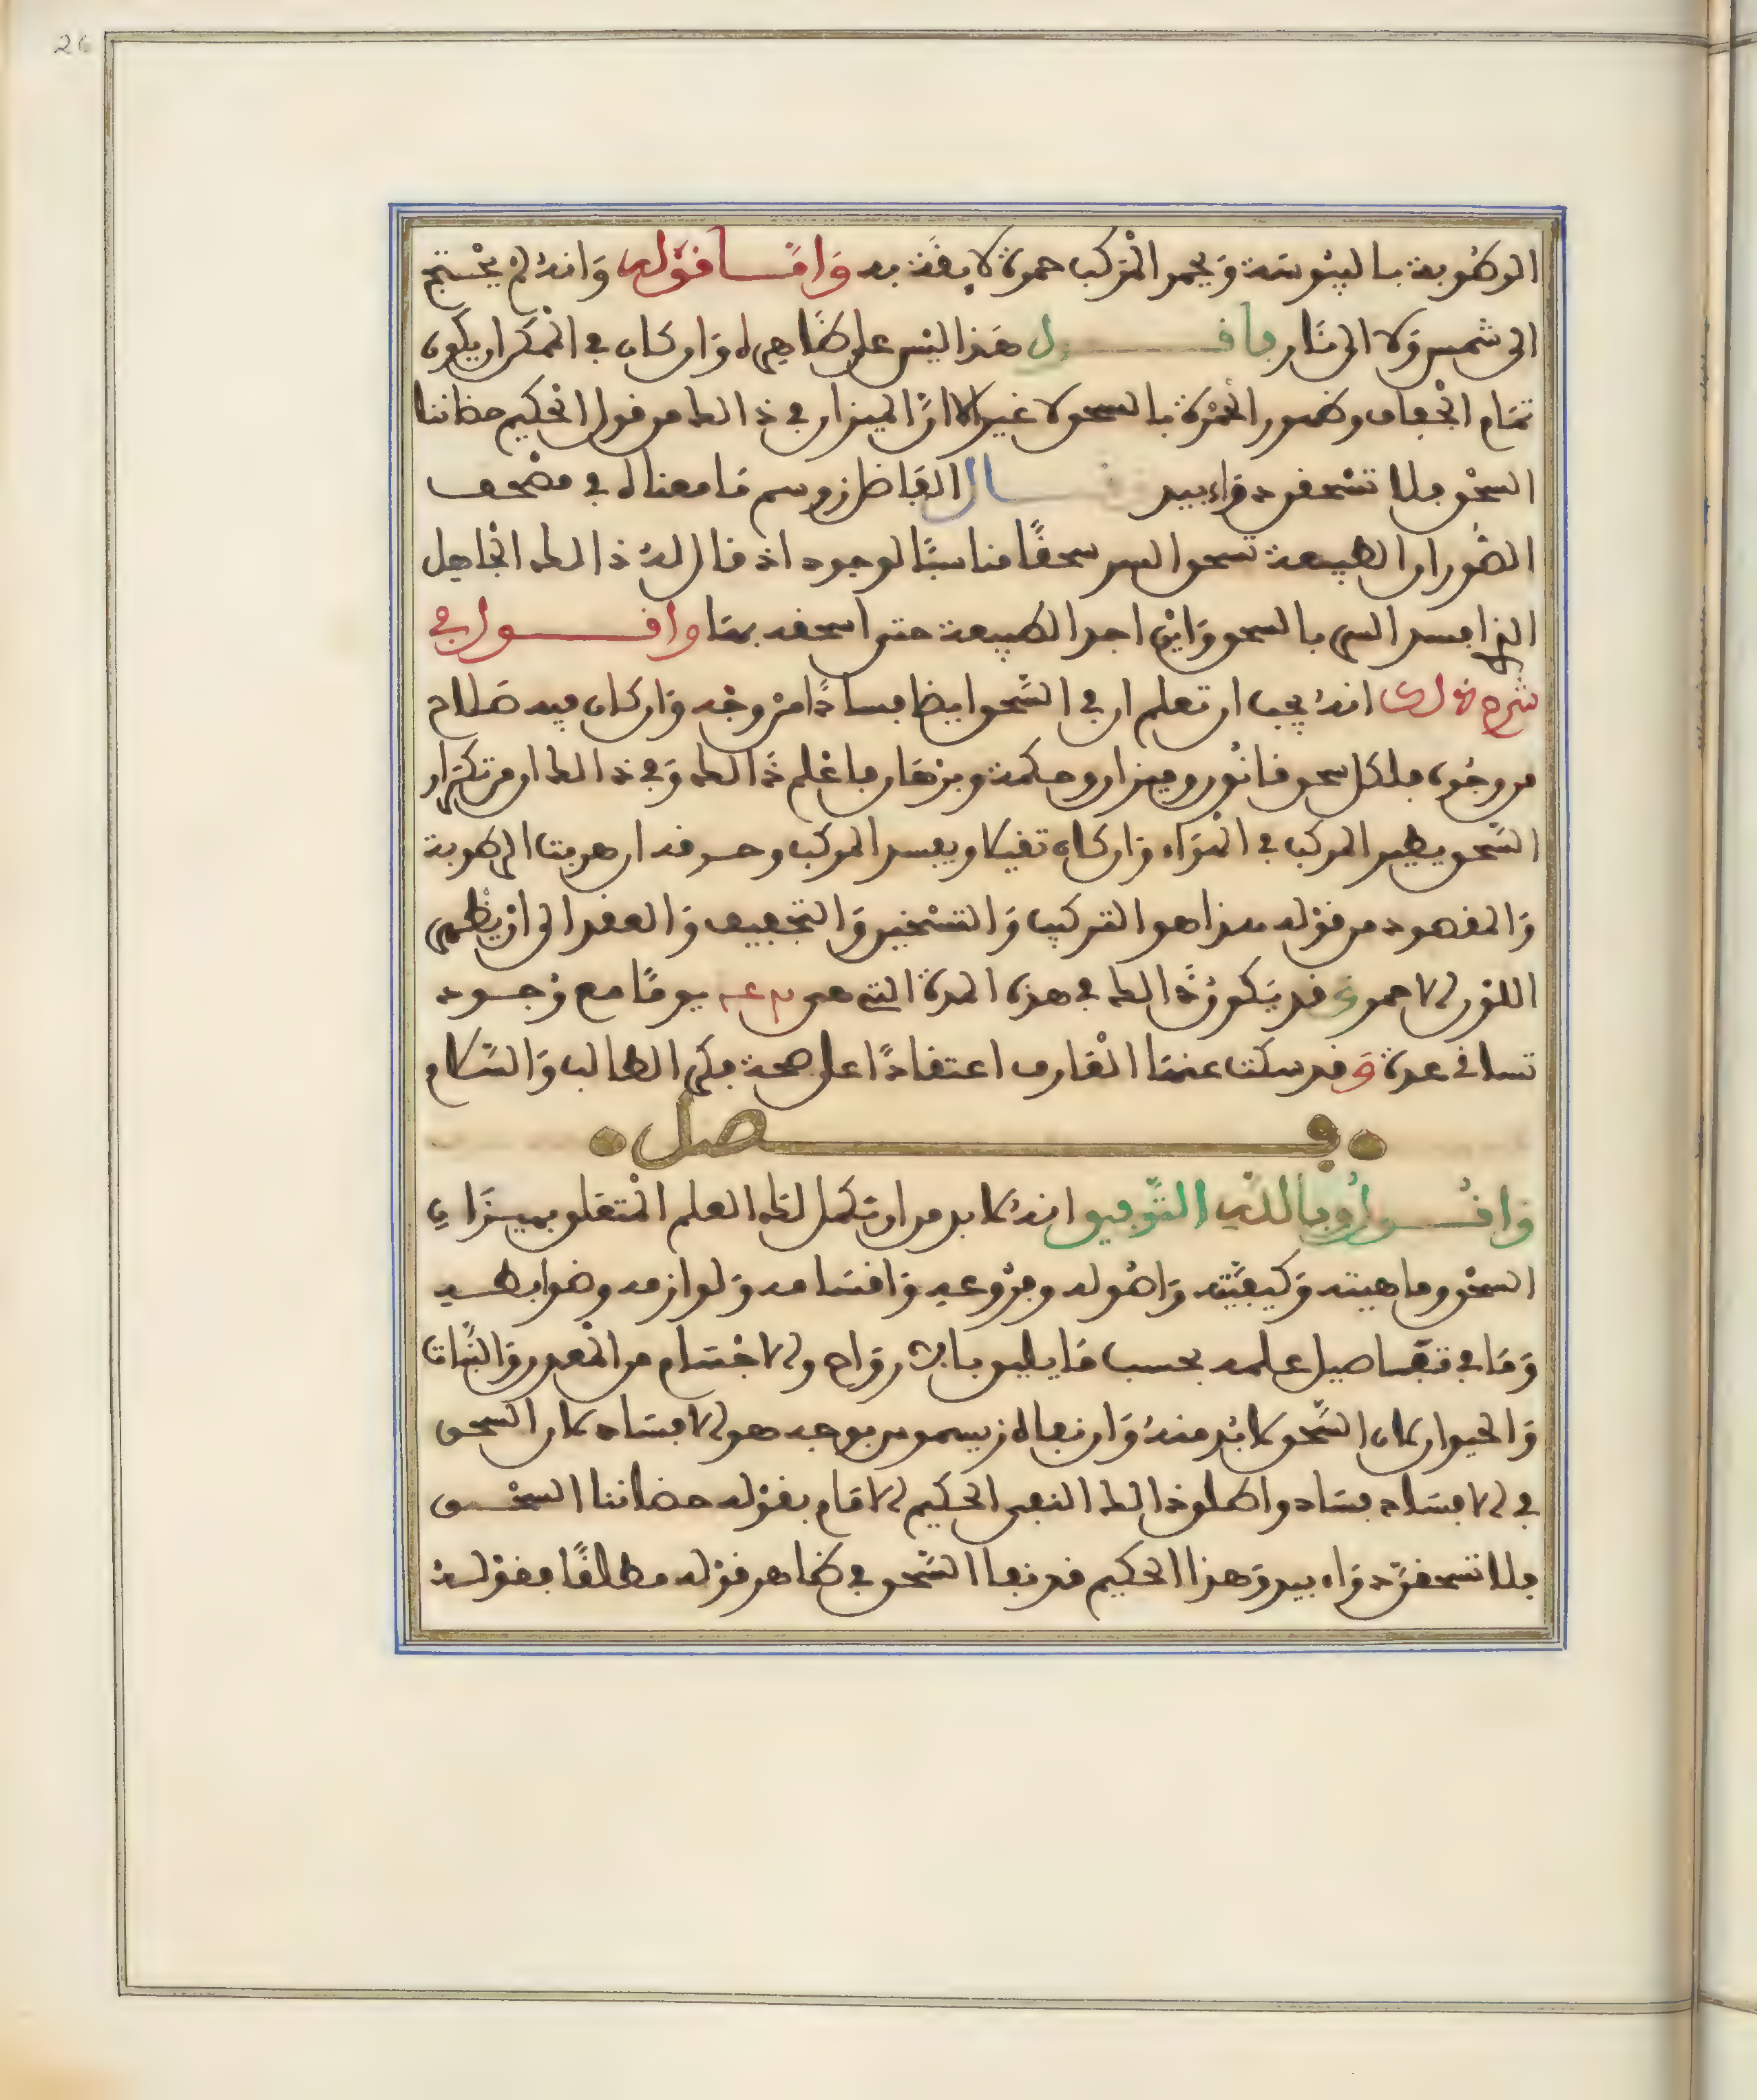 26
الرطوبة باليبوسة ويحمر المركب حمرة لايقة به وَامَّا قوله وَانه لم يحتج
الى شمس ولا الى نار فاقول هذا ليس على ظاهره وان كان في المكرار يكون
تمام الجفاف وظهور الحمرة بالسحق لا غير الا ان الميزان في ذالك من قول الحكيم حضاننا
السحق فلا تسحقن دواءبيد قال الفاضل زوسم ما معناه في مصحف
الصور ان الطبيعة تسحق السر سحقًا مناسبًا لوجود اذ قال له ذالك الجاهل
الذي افسد السر بالسحق وَاين اجد الطبيعة حتى اسحقه بها واقول في
شرح ذلك انه يجب ان تعلم ان في السحق ايضا فسادًا من وجه وان كان فيه صلاح
من وجوه فلكل سحق قانون وميزان وحكمة وبرهان فاعلم ذالك وفي ذالك ان من تكرار
السحق يطير المركب في الهواء وان كان ثقيلا ويفسد المركب وحرقه ان هربت الرطوبة
والمقصود من قوله هذا هو التركيب والتسخين والتجفيف والعقد الى ان يظهر
اللون الاحمر وقد يكون ذالك في هذه المدة التي هي يومًا مع وجود
تساقي عدة وقد سكت عنها العارف اعتمادًا على صحة فكر الطالب والسلام
فصل
واقول وبالله التوفيق انه لا بد من ان نكمل لك العلم المتعلق بميزان
السحق وماهيته وكيفيته واصوله وفروعه واقسامه ولوازمه وضوابطه
وما في تفاصيل علمه بحسب ما يليق بالارواح والاجسام من المعدن والنبات
والحيوان لان السحق لا بد منه وان نفاه زيسموس بوجه هو الافساد لان السحق
في الافساد فساد واطلق ذالك النفى الحكيم الامام بقوله حضاننا السحق
فلا تسحقن دواء بيد وهذا الحكيم قد نفا السحق في ظاهر قوله مطلقًا فقوله